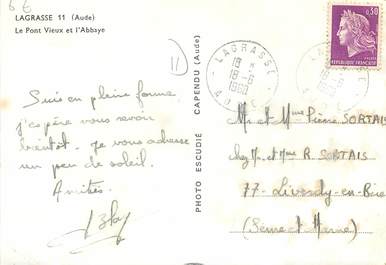 6 E
LAGRASSE 11 (Aude)
Le Pont Vieux et l'Abbaye
11
Suis en pleine forme,
j'espère vous revoir
bientôt. Je vous adresse
un peu de soleil.
Amitiés.
PHOTO ESCUDIÉ CAPENDU (Aude)
LAGRASSE
18 H
18-6
AUDE
0,30
REPUBLIQUE FRANÇAISE
Mr et Mme Pierre SORTAIS
chez Mr et Mme R. SORTAIS
77 - Liverdy-en-Brie
(Seine et Marne)